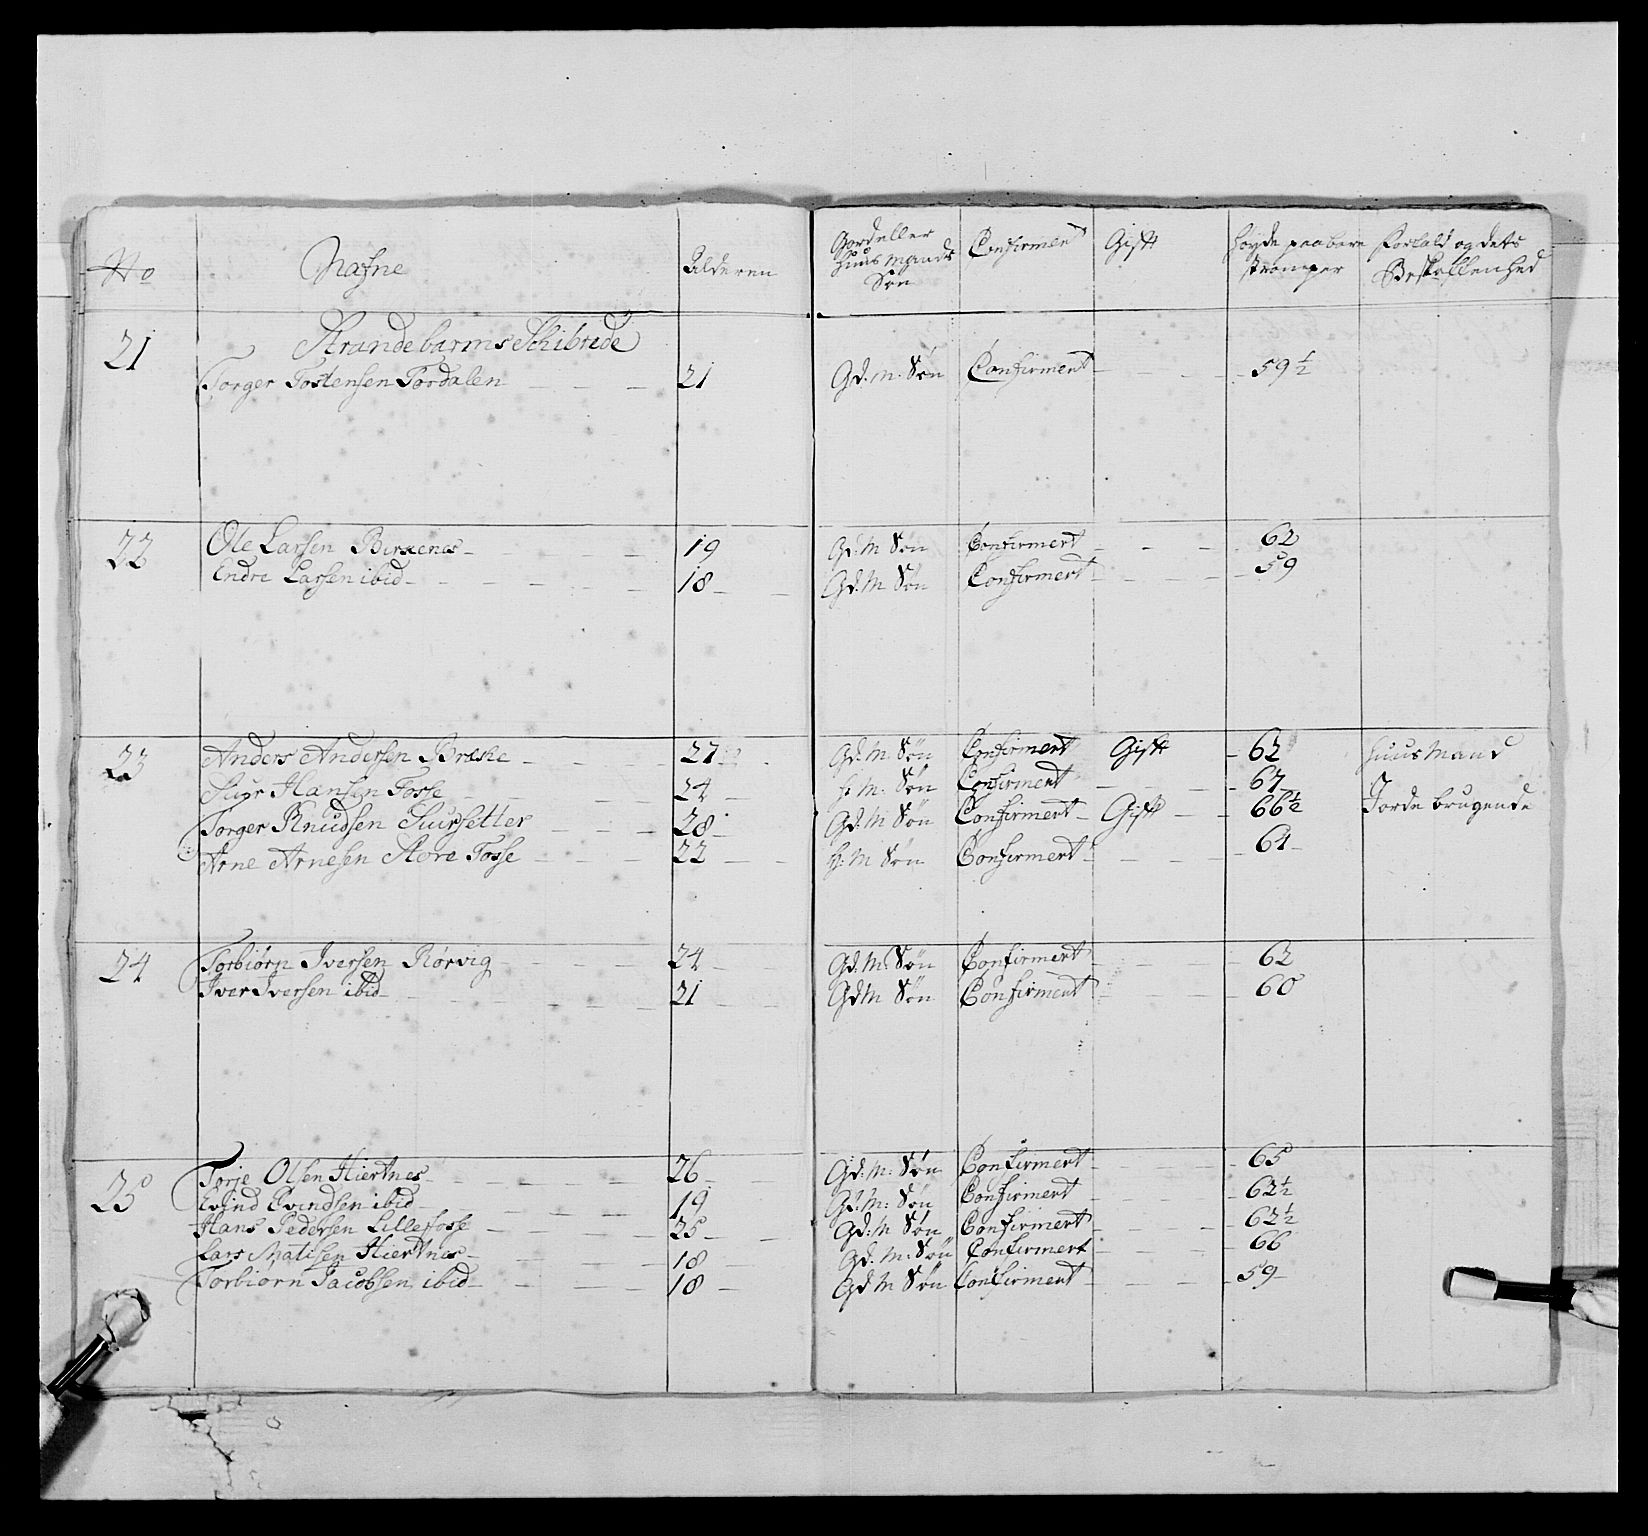 No Nafne Alderen Gord eller Huus Mands Søn Confirmert Gift Høyde paa bare strømper Forfald og dets Beskaffenhed
Strandebarms Schibrede
21 Torger Tostensen Tordalen 21 Gd. M. Søn Confirmert 59 1/2
22 Ole Larsen Berkenes 19 Gd: M Søn Confirmert 62
Endre Larsen ibid 18 Gd: M Søn Confirmert 59
23 Anders Andersen Bræke 27 Gd: M Søn Confirmert Gift 62 Huus Mand
Siur Hansen Fosse 24 H: M: Søn Confirmert 67
Torger Knudsen Siursetter 28 Gd: M Søn Confirmert Gift 66 1/2 Jorde brugende
Arne Arnesen Store Fosse 22 H: M Søn Confirmert 64
24 Torbiørn Iversen Rørvig 24 Gd: M: Søn Confirmert 62
Iver Iversen ibid 21 Gd M Søn Confirmert 60
25 Torje Olsen Hiertnes 26 Gd: M: Søn Confirmert 65
Evind Evindsen ibid 19 Gd: M: Søn Confirmert 62 1/2
Hans Pedersen Lillefosse 25 Gd: M Søn Confirmert 62 1/2
Lars Matisen Hiertnes 18 Gd: M: Søn Confirmert 66
Torbiørn Jacobsen ibid 18 Gd M Søn Confirmert 59